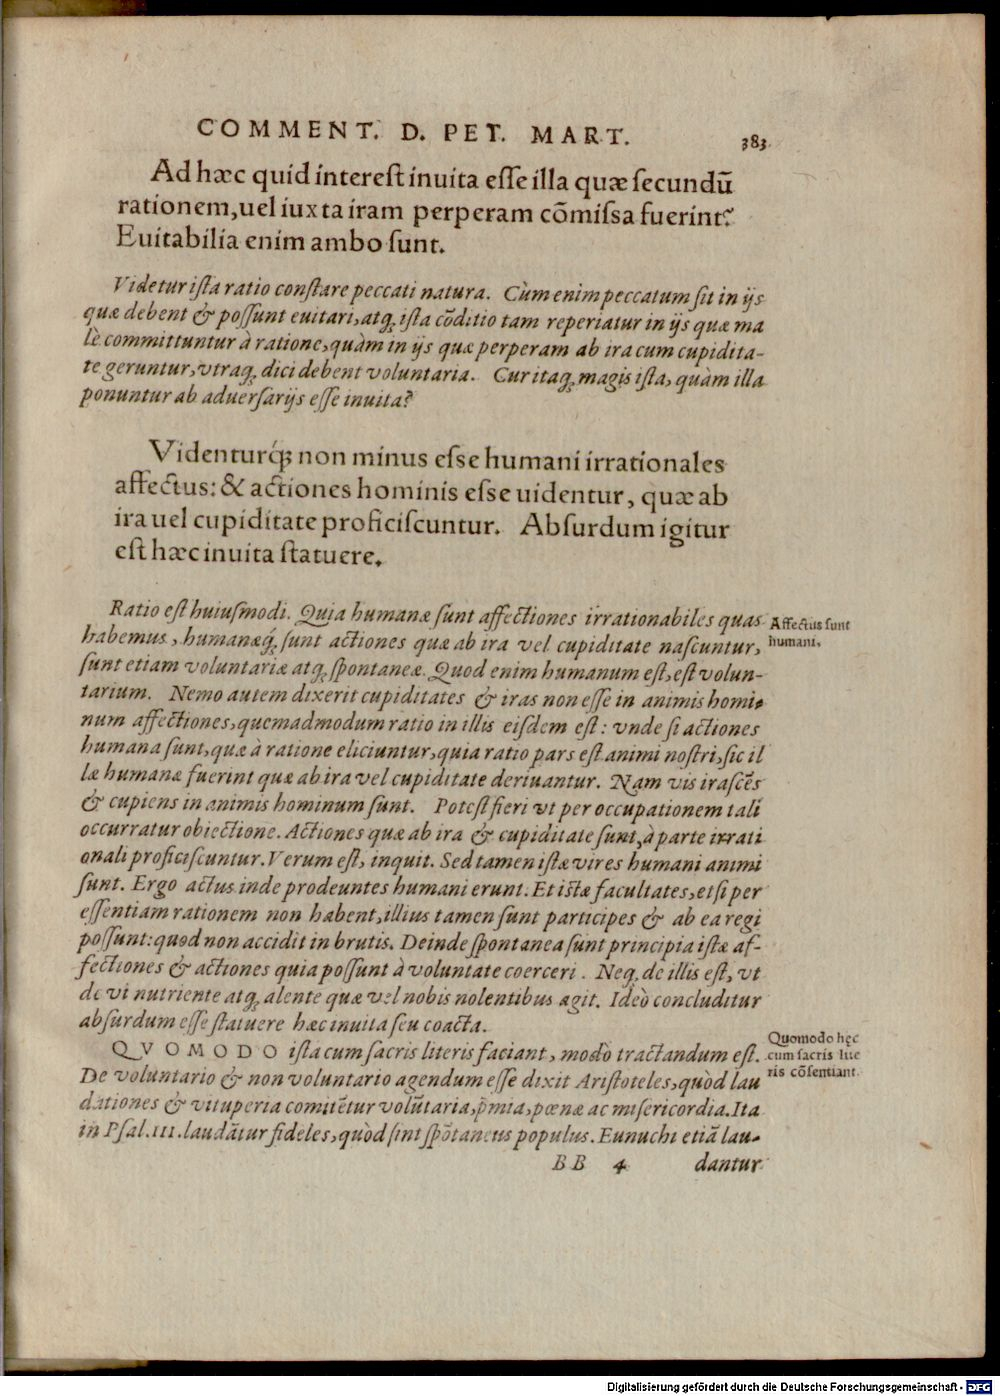 COMMENT. D. PET. MART. 383
Ad hæc quid interest inuita esse illa quæ secundũ
rationem, uel iuxta iram perperam cõmissa fuerint?
Euitabilia enim ambo sunt.
Videtur ista ratio constare peccati natura. Cùm enim peccatum sit in ijs
quæ debent & possunt euitari, atq; ista cõditio tam reperiatur in ijs quæ ma
lè committuntur à ratione, quàm in ijs quæ perperam ab ira cum cupidita-
te geruntur, vtraq; dici debent voluntaria. Cur itaq; magis ista, quàm illa
ponuntur ab aduersarijs esse inuita?
Videnturq́; non minus esse humani irrationales
affectus: & actiones hominis esse uidentur, quæ ab
ira uel cupiditate proficiscuntur. Absurdum igitur
est hæc inuita statuere.
Ratio est huiusmodi. Quia humanæ sunt affectiones irrationabiles quas
habemus, humanæq́; sunt actiones quæ ab ira vel cupiditate nascuntur,
sunt etiam voluntariæ atq; spontaneæ. Quod enim humanum est, est volun-
tarium. Nemo autem dixerit cupiditates & iras non esse in animis homi-
num affectiones, quemadmodum ratio in illis eisdem est: vnde si actiones
humana sunt, quæ à ratione eliciuntur, quia ratio pars est animi nostri, sic il
læ humanæ fuerint quæ ab ira vel cupiditate deriuantur. Nam vis irascẽs
& cupiens in animis hominum sunt. Potest fieri vt per occupationem tali
occurratur obiectione. Actiones quæ ab ira & cupiditate sunt, à parte irrati
onali proficiscuntur. Verum est, inquit. Sed tamen istæ vires humani animi
sunt. Ergo actus inde prodeuntes humani erunt. Et istæ facultates, etsi per
essentiam rationem non habent, illius tamen sunt participes & ab ea regi
possunt: quod non accidit in brutis. Deinde spontanea sunt principia istæ af-
fectiones & actiones quia possunt à voluntate coerceri. Neq; de illis est, vt
de vi nutriente atq; alente quæ vel nobis nolentibus agit. Ideò concluditur
absurdum esse statuere hæc inuita seu coacta.
QVOMODO ista cum sacris literis faciant, modò tractandum est.
De voluntario & non voluntario agendum esse dixit Aristoteles, quòd lau
dationes & vituperia comitẽtur volũtaria, p̃mia, pœnæ ac misericordia. Ita
in Psal. 111. laudãtur fideles, quòd sint spõtaneus populus. Eunuchi etiã lau-
BB 4 dantur
Affectus sunt
humani.
Quomodo hęc
cum sacris lite
ris cõsentiant.
Digitalisierung gefördert durch die Deutsche Forschungsgemeinschaft - DFG